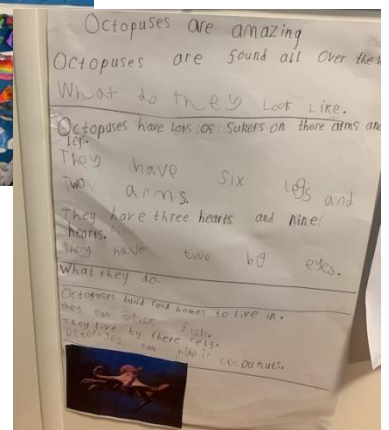 Octopuses are amazing
Octopuses are found all over the
What do they Look Like.
Octopuses have lots os sukers on there arms and
legs.
They have six legs and
Two arms.
They have three hearts and nine
hearts.
They have two big eyes.
What they do
Octopuses build rock homes to live in.
they eat fish.
They live by there
Octopuses can hide in coconuts.